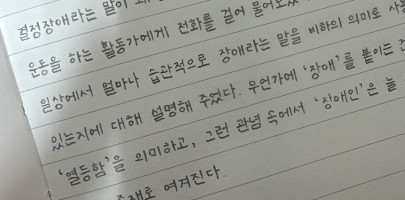 결정장애라는 말이
운동을 하는 활동가에게 전화를 걸어 물어보았
일상에서 얼마나 습관적으로 장애라는 말을 비하의 의미로 사용
있는지에 대해 설명해 주었다. 무언가에 '장애'를 붙이는 건
'열등함'을 의미하고, 그런 관념 속에서 '장애인'은 늘
존재로 여겨진다.